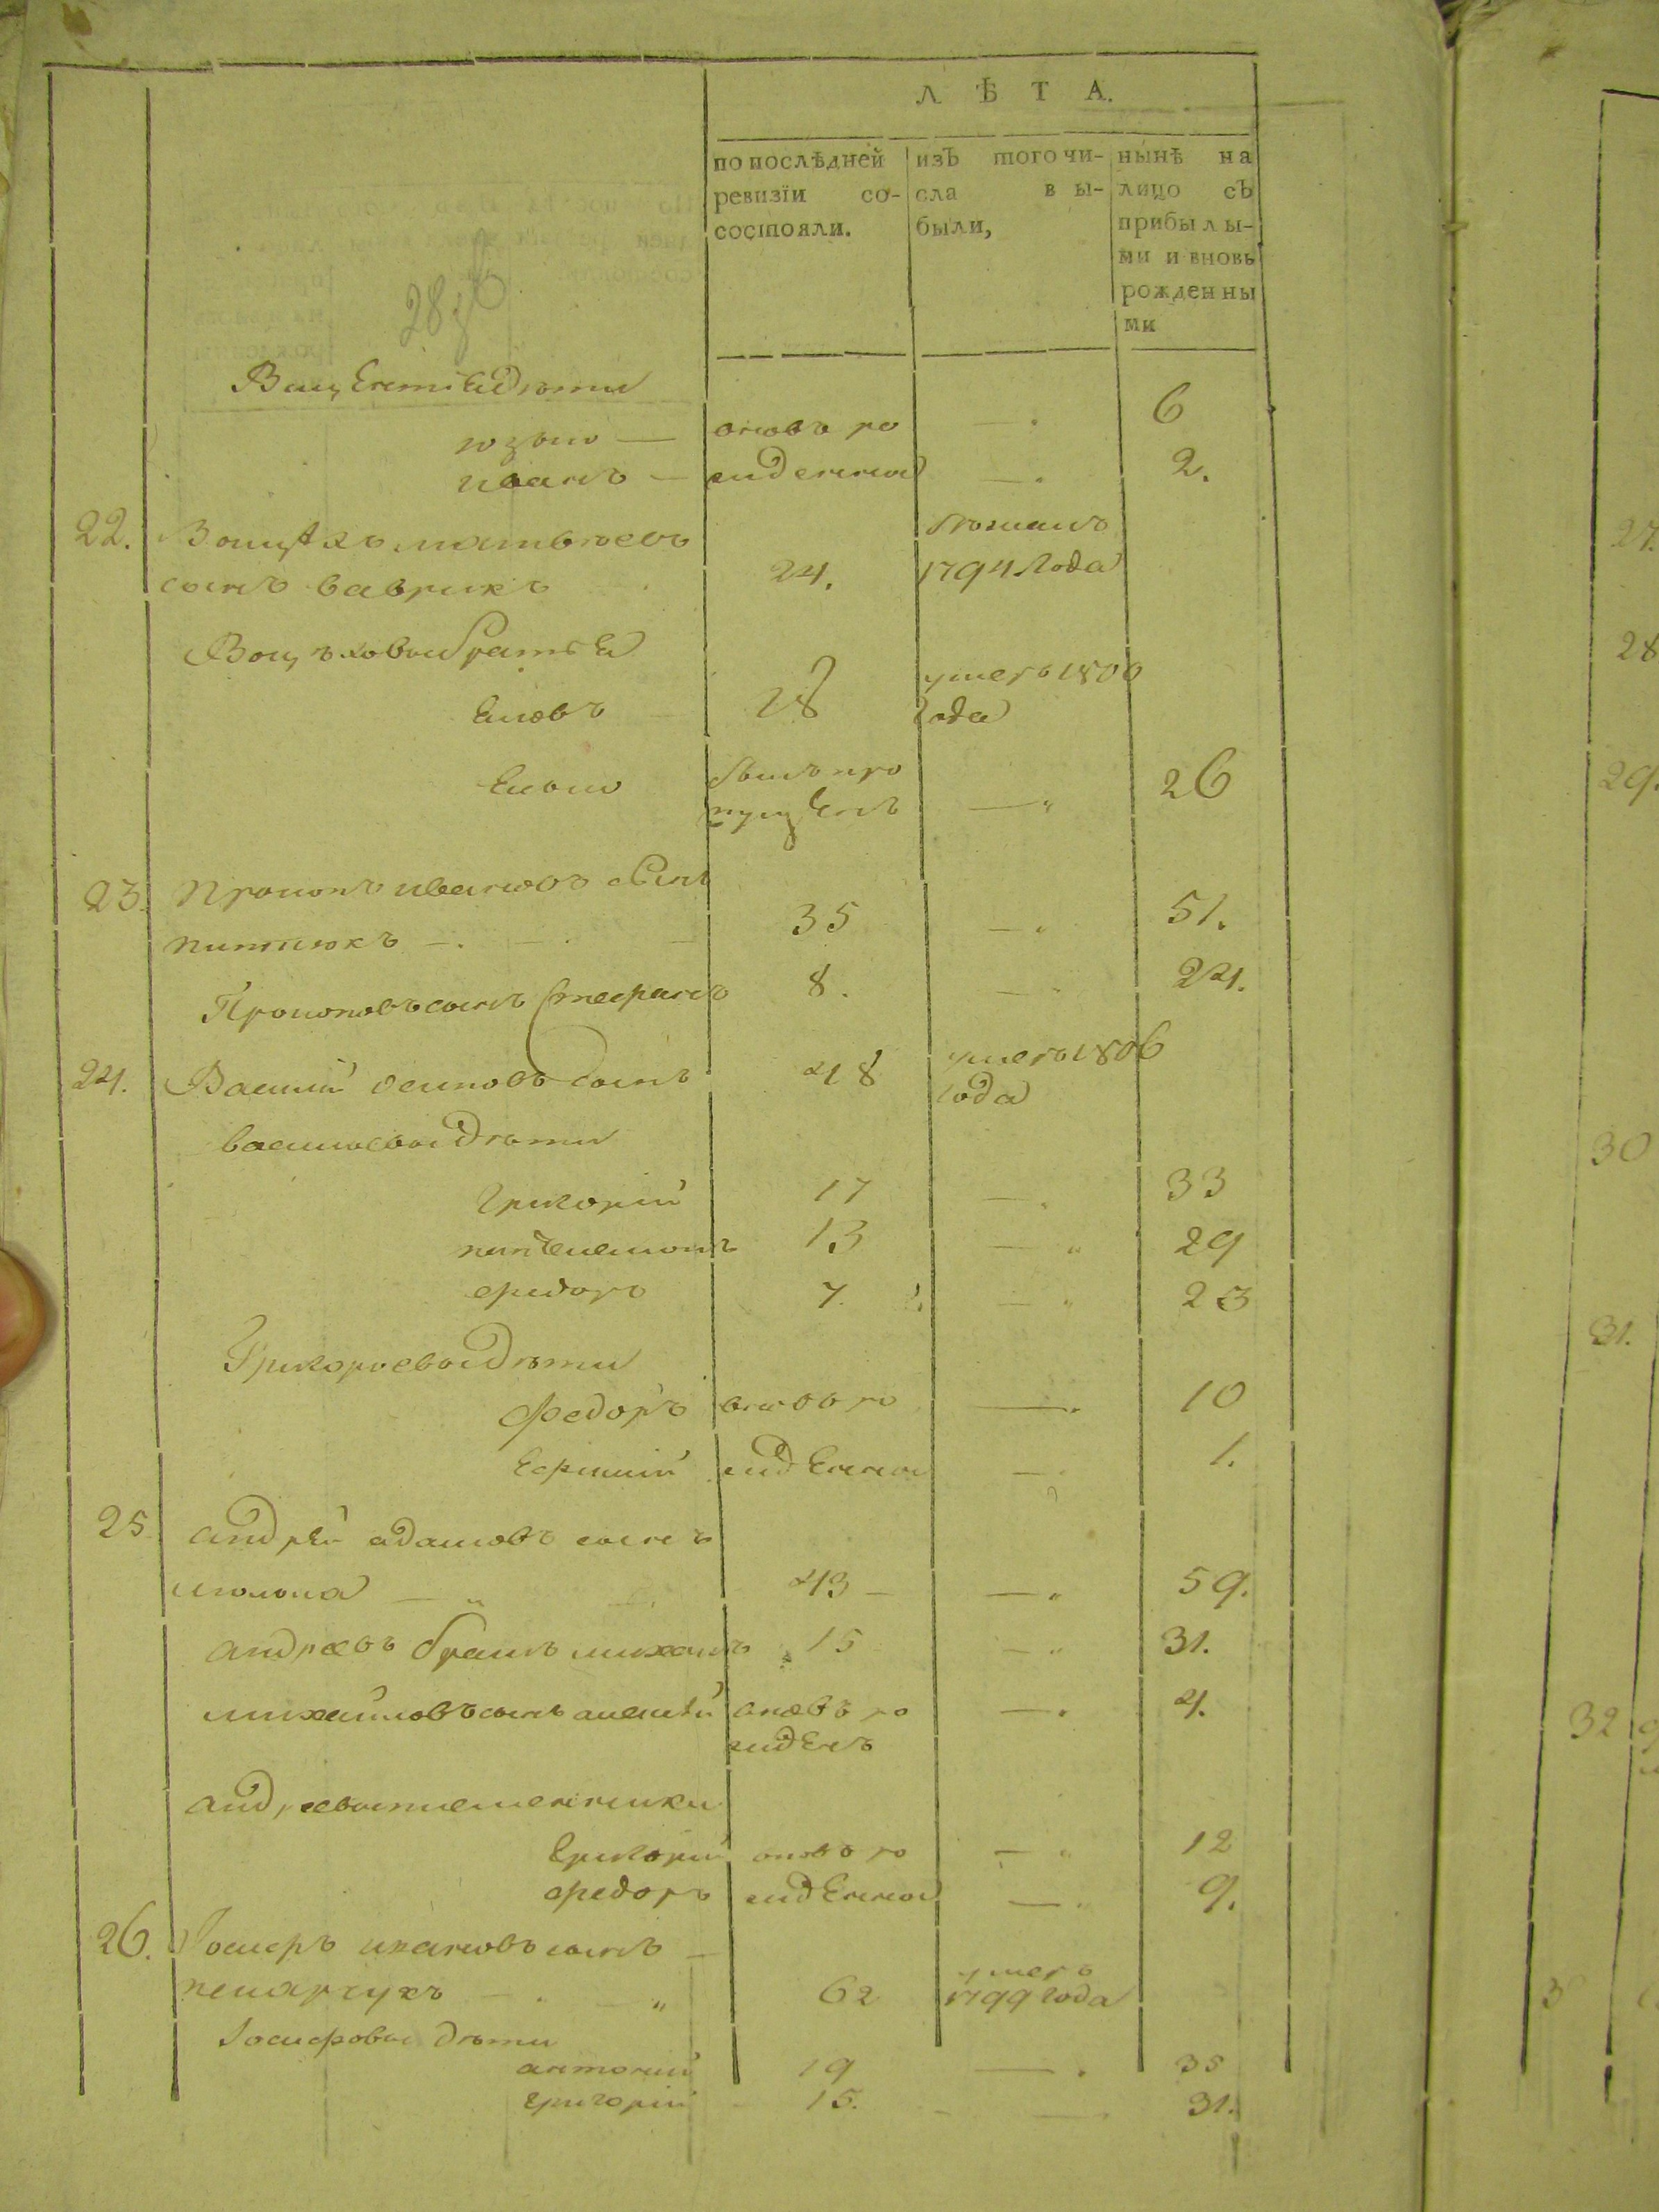 Л Ѣ Т А.
по послѣдней
ревизїи со-
состояли.
изЪ того чи-
сла вы-
были,
нынѣ на
лицо сЪ
прибылы-
ми и вновь
рожденны
ми
дѣти
вновь ро 6
иванъ — жденные 2.
22. матвѣевъ
сынъ ваврикъ 24. 1794 года
братья
28 умеръ 1806
года
былъ про
пущенъ 26
23. Прокопъ ивановъ сынъ
питиюкъ 35 51.
Прокоповъ сынъ Стефанъ 8. 24.
24. Василій осиповъ сынъ 48 умеръ 1806
года
василіевы дѣти
григорій 17 33
пантелемонъ 13 29
фидоръ 7. 23
Григорьевы дѣти
федоръ вновь ро 10
Ефимій жденные 1.
25 андрей адамовъ сынъ
43 59.
андреевъ братъ михаилъ 15 31.
михайловъ сынъ алексѣй вновь ро 4.
жденъ
андреевы племенники
григорій вновь ро 12
федоръ жденные 9.
26. Іосифъ ивановъ сынъ
62 умеръ
1799 года
Іосифовы дѣти
антоній 19 35
григорій 15. 31.
27.
28
29.
30
31.
32